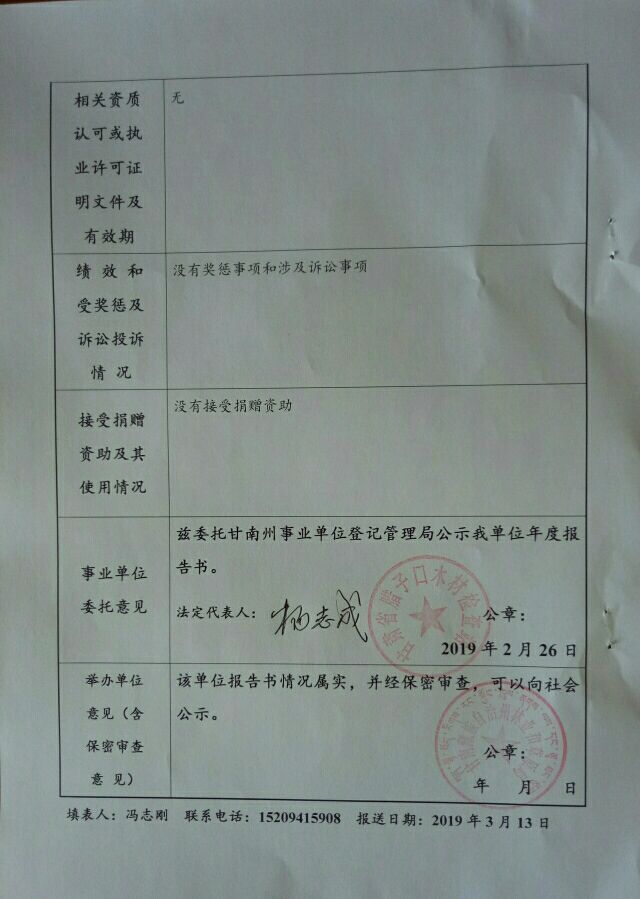 相关资质
认可或执
业许可证
明文件及
有效期
无
绩 效 和
受奖惩及
诉讼投诉
情 况
没有奖惩事项和涉及诉讼事项
接受捐赠
资助及其
使用情况
没有接受捐赠资助
事业单位
委托意见
兹委托甘南州事业单位登记管理局公示我单位年度报
告书。
法定代表人：
杨志成
公章：
甘肃省腊子口木材检查站
2019 年 2 月 26 日
举办单位
意见（含
保密审查
意 见）
该单位报告书情况属实，并经保密审查，可以向社会
公示。
公章：
年 月 日
填表人：冯志刚 联系电话：15209415908 报送日期：2019 年 3 月 13 日